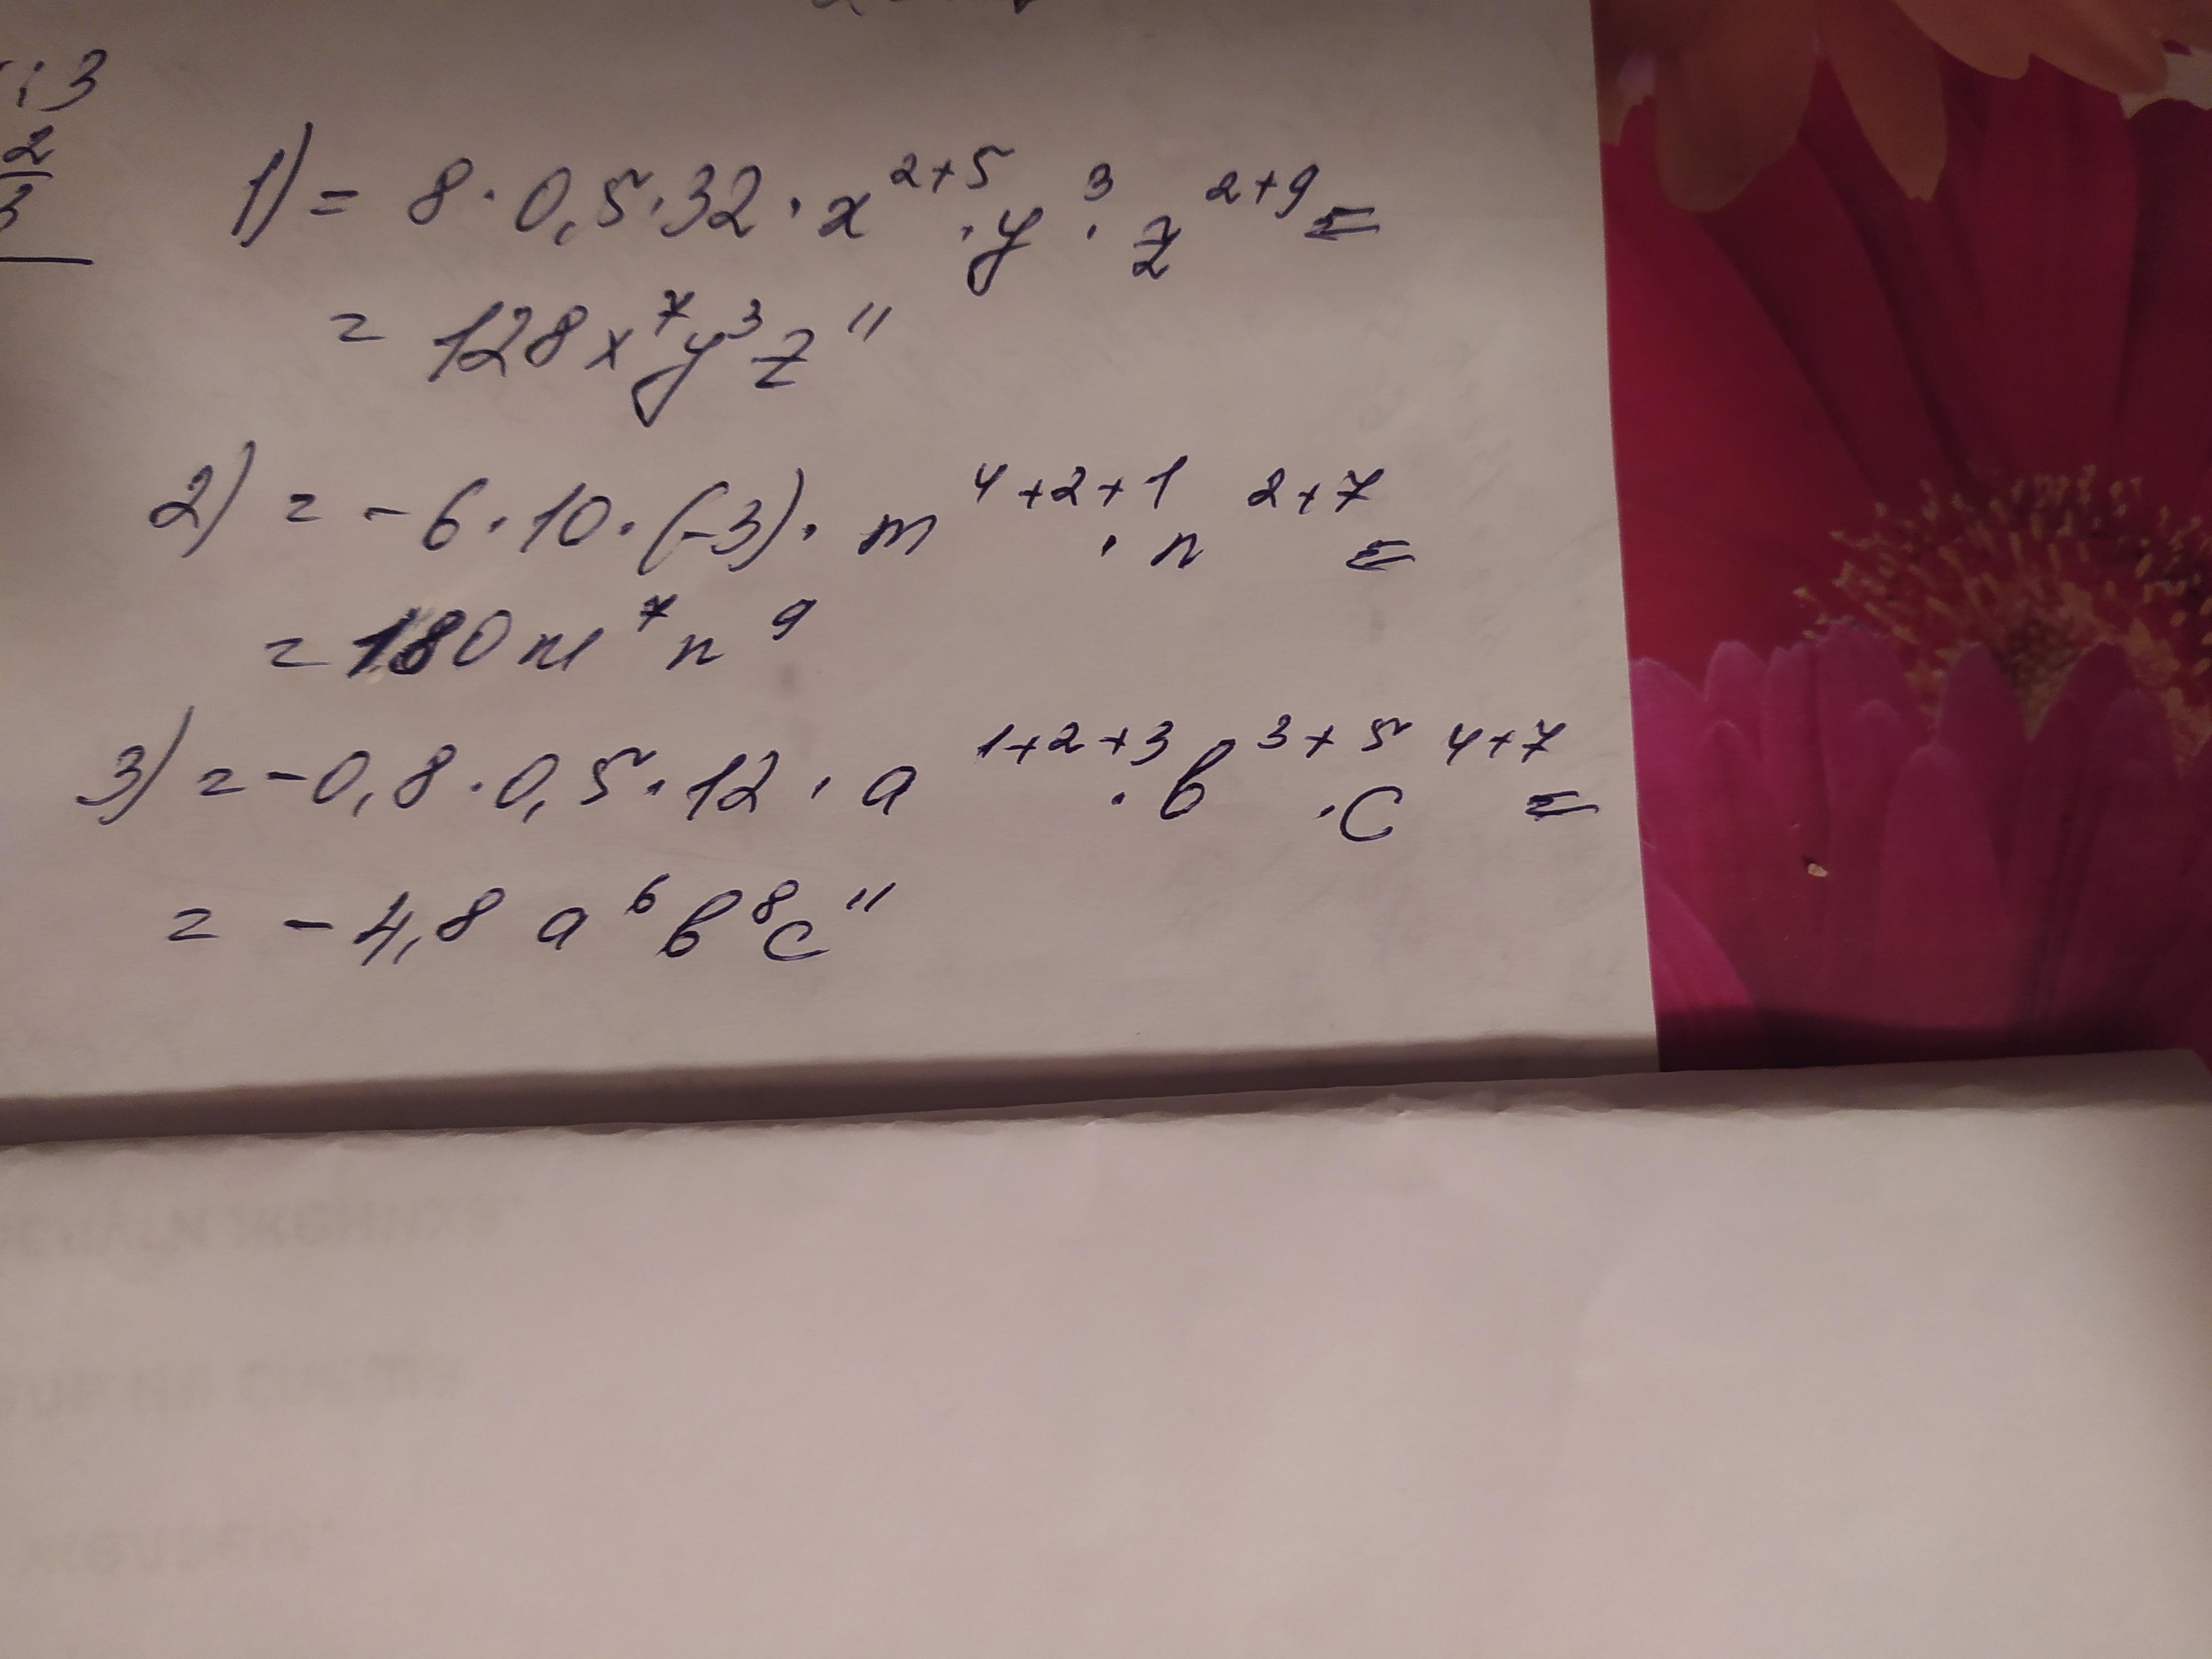 : 3
2
3
1) = 8 · 0,5 · 32 · x^{2+5} · y^3 · z^{2+9} =
= 128 x^7 y^3 z^{11}
2) = -6 · 10 · (-3) · m^{4+2+1} · n^{2+7} =
= 180 m^7 n^9
3) = -0,8 · 0,5 · 12 · a^{1+2+3} · b^{3+5} · c^{4+7} =
= -4,8 a^6 b^8 c^{11}